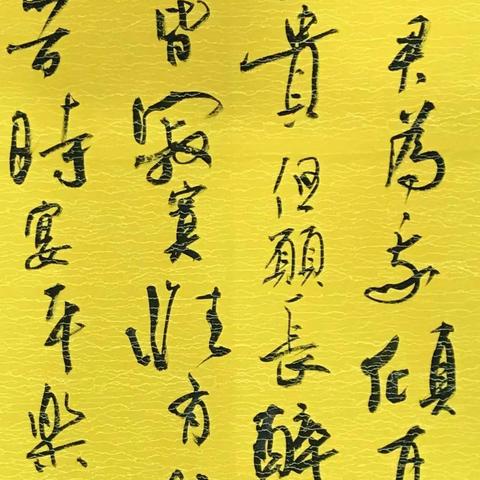 君為我傾耳
貴但願長醉
皆寂寞惟有
昔時宴平樂